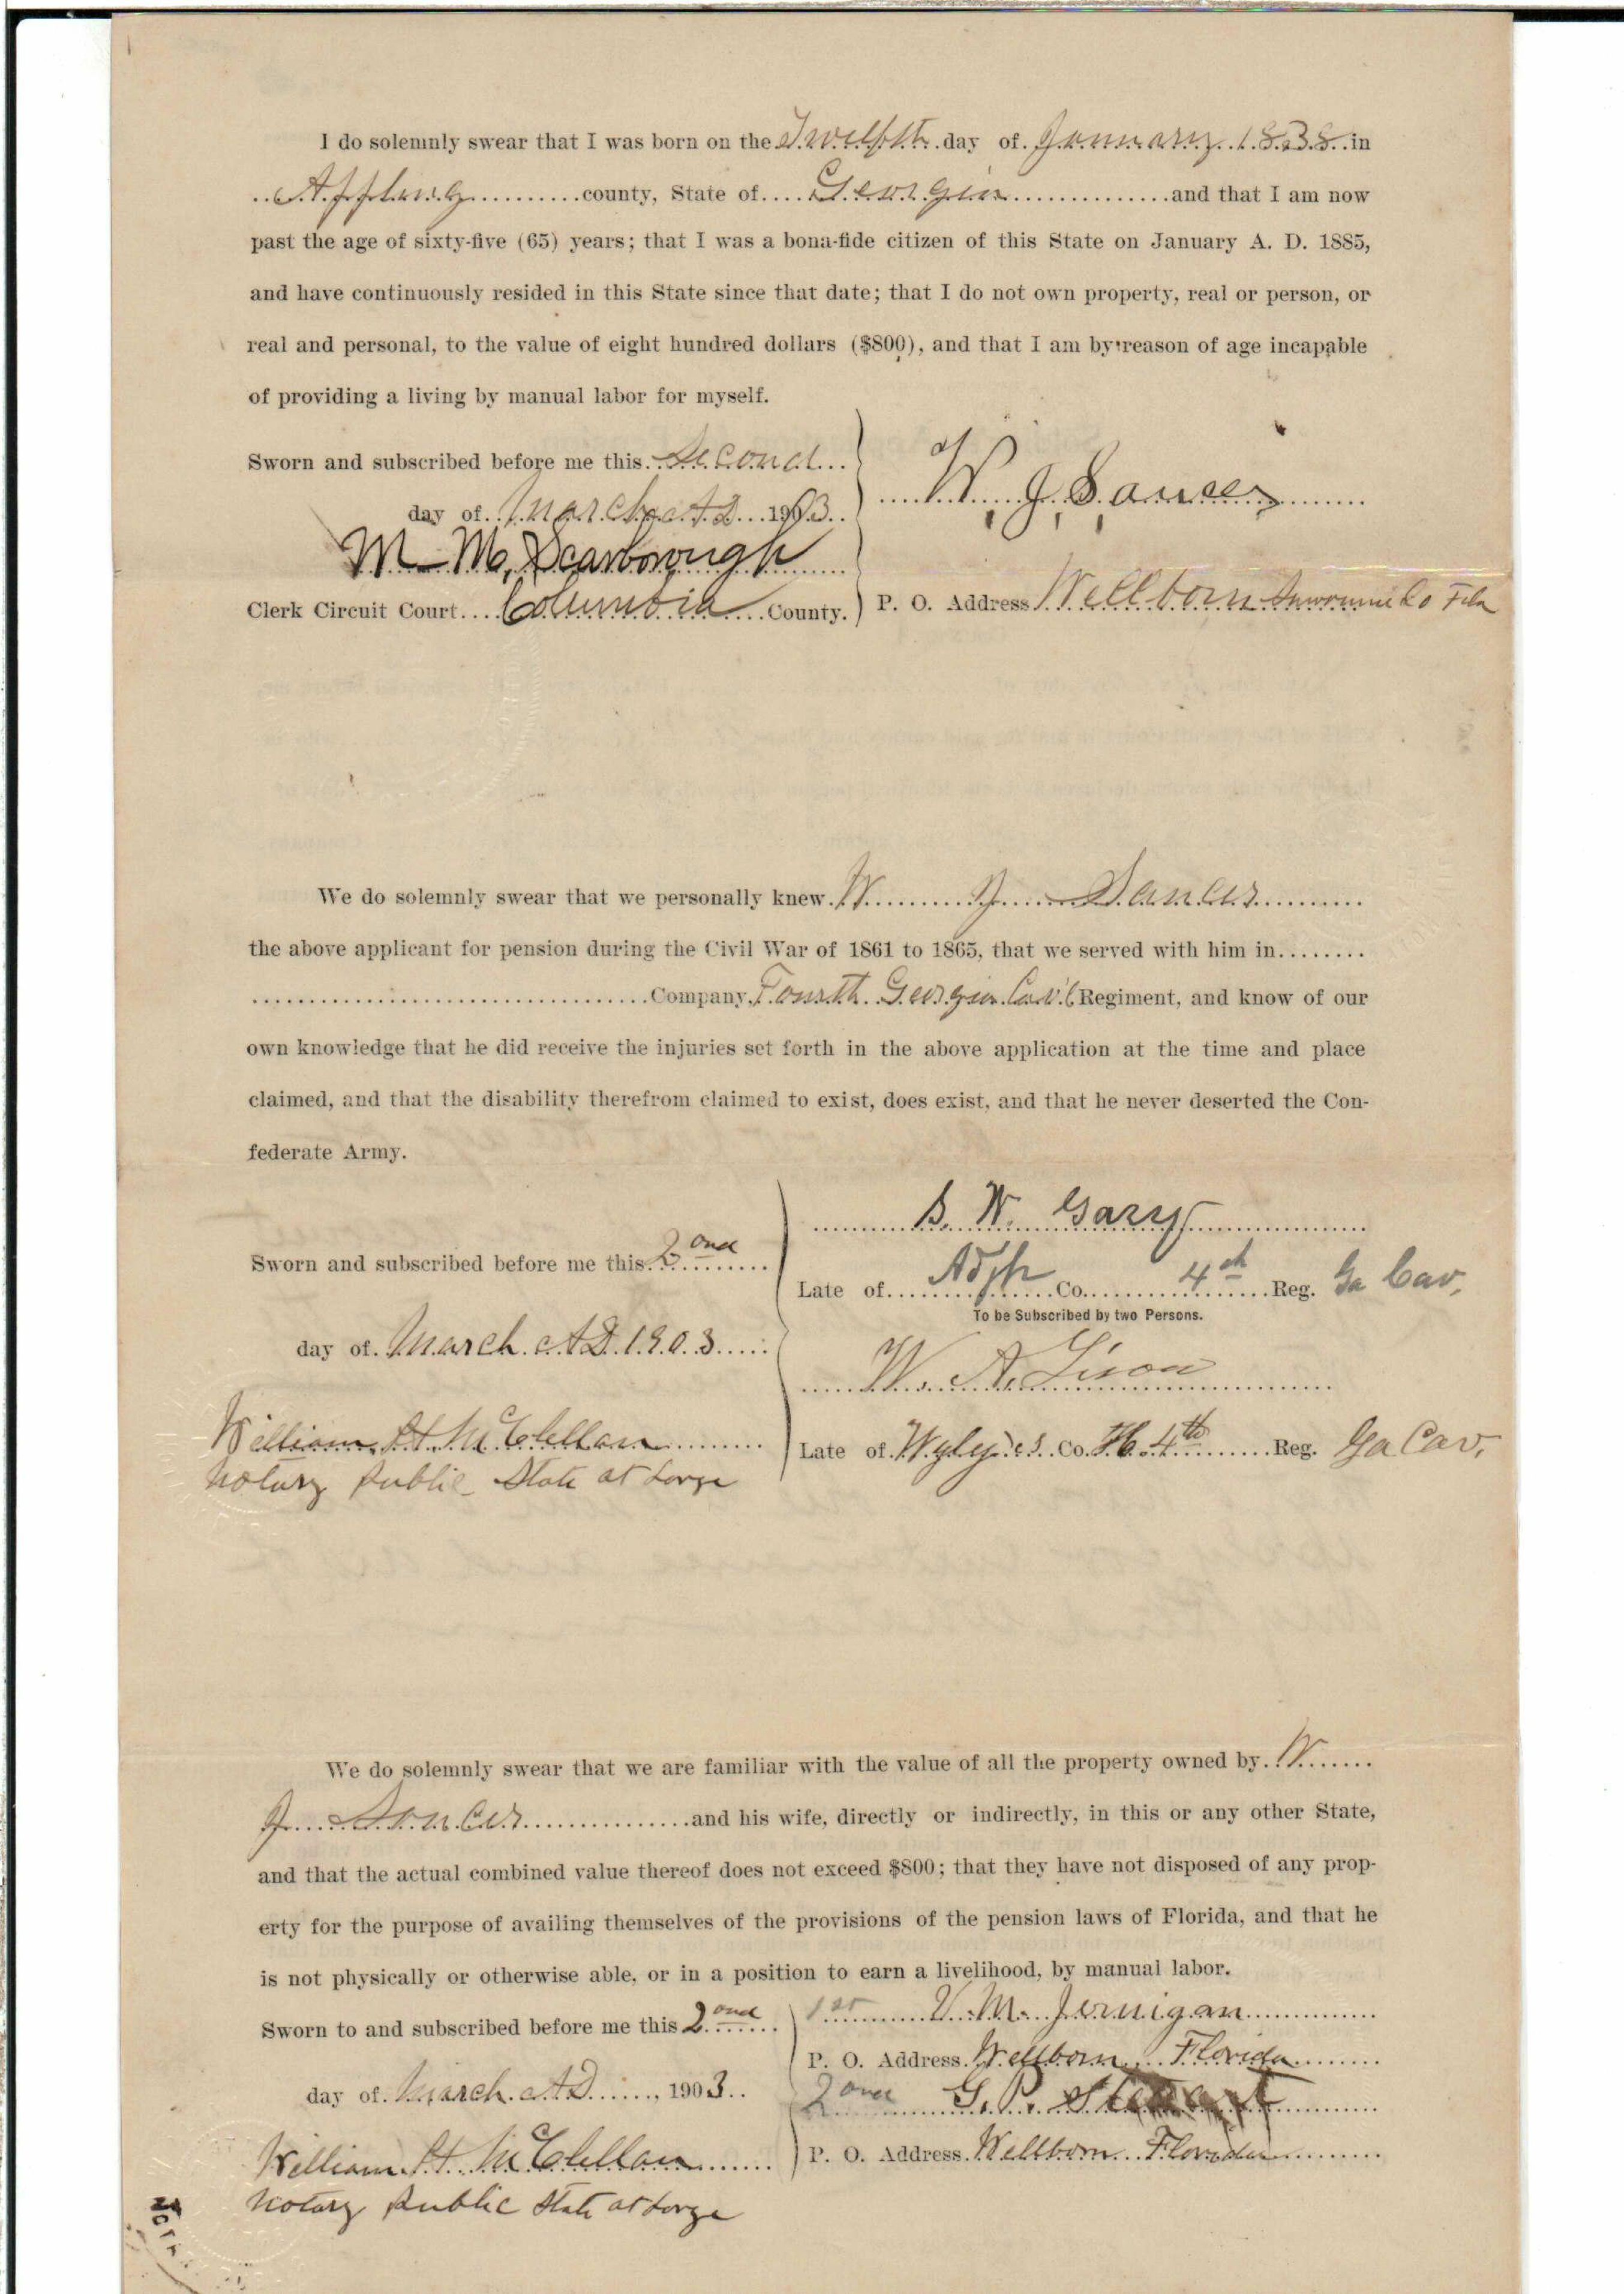 I do solemnly swear that I was born on the Twelfth day of January 1838 in
Appling county, State of Georgia and that I am now
past the age of sixty-five (65) years; that I was a bona-fide citizen of this State on January A. D. 1885,
and have continuously resided in this State since that date; that I do not own property, real or person, or
real and personal, to the value of eight hundred dollars ($800), and that I am by reason of age incapable
of providing a living by manual labor for myself.
Sworn and subscribed before me this Second
day of March A D 1903
W. J. 
M. M. Scarborough
Clerk Circuit Court Columbia County.
P. O. Address Wellborn Suwannee Co Fla
We do solemnly swear that we personally knew W J 
the above applicant for pension during the Civil War of 1861 to 1865, that we served with him in
Company Fourth Georgia Cav'l Regiment, and know of our
own knowledge that he did receive the injuries set forth in the above application at the time and place
claimed, and that the disability therefrom claimed to exist, does exist, and that he never deserted the Con-
federate Army.
W. Gary
Sworn and subscribed before me this 2ond
Late of Co. 4th Reg. Ga Cav,
To be Subscribed by two Persons.
day of March A D 1903
W. A.
William H McClellan
Late of Co. H. 4th Reg. Ga Cav,
Notary Public State at Large
We do solemnly swear that we are familiar with the value of all the property owned by W
J and his wife, directly or indirectly, in this or any other State,
and that the actual combined value thereof does not exceed $800; that they have not disposed of any prop-
erty for the purpose of availing themselves of the provisions of the pension laws of Florida, and that he
is not physically or otherwise able, or in a position to earn a livelihood, by manual labor.
Sworn to and subscribed before me this 2ond
1st V. M. Jernigan
P. O. Address Wellborn Florida
day of March A D, 1903
2ond G. P. Stewart
William H McClellan
P. O. Address Wellborn Florida
Notary Public State at Large